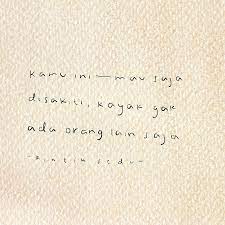 kamu ini—mau saja
disakiti, kayak gak
ada orang lain saja
-rintik sedu-